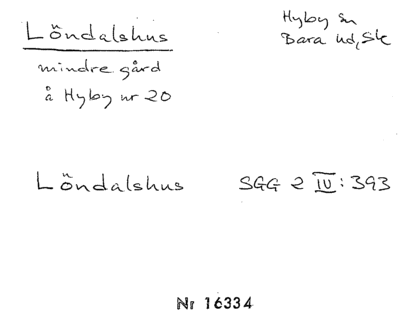 Löndalshus
mindre gård
å Hyby nr 20
Hyby sn
Bara hd, Sk
Löndalshus SGG 2 IV: 393
Nr 16334